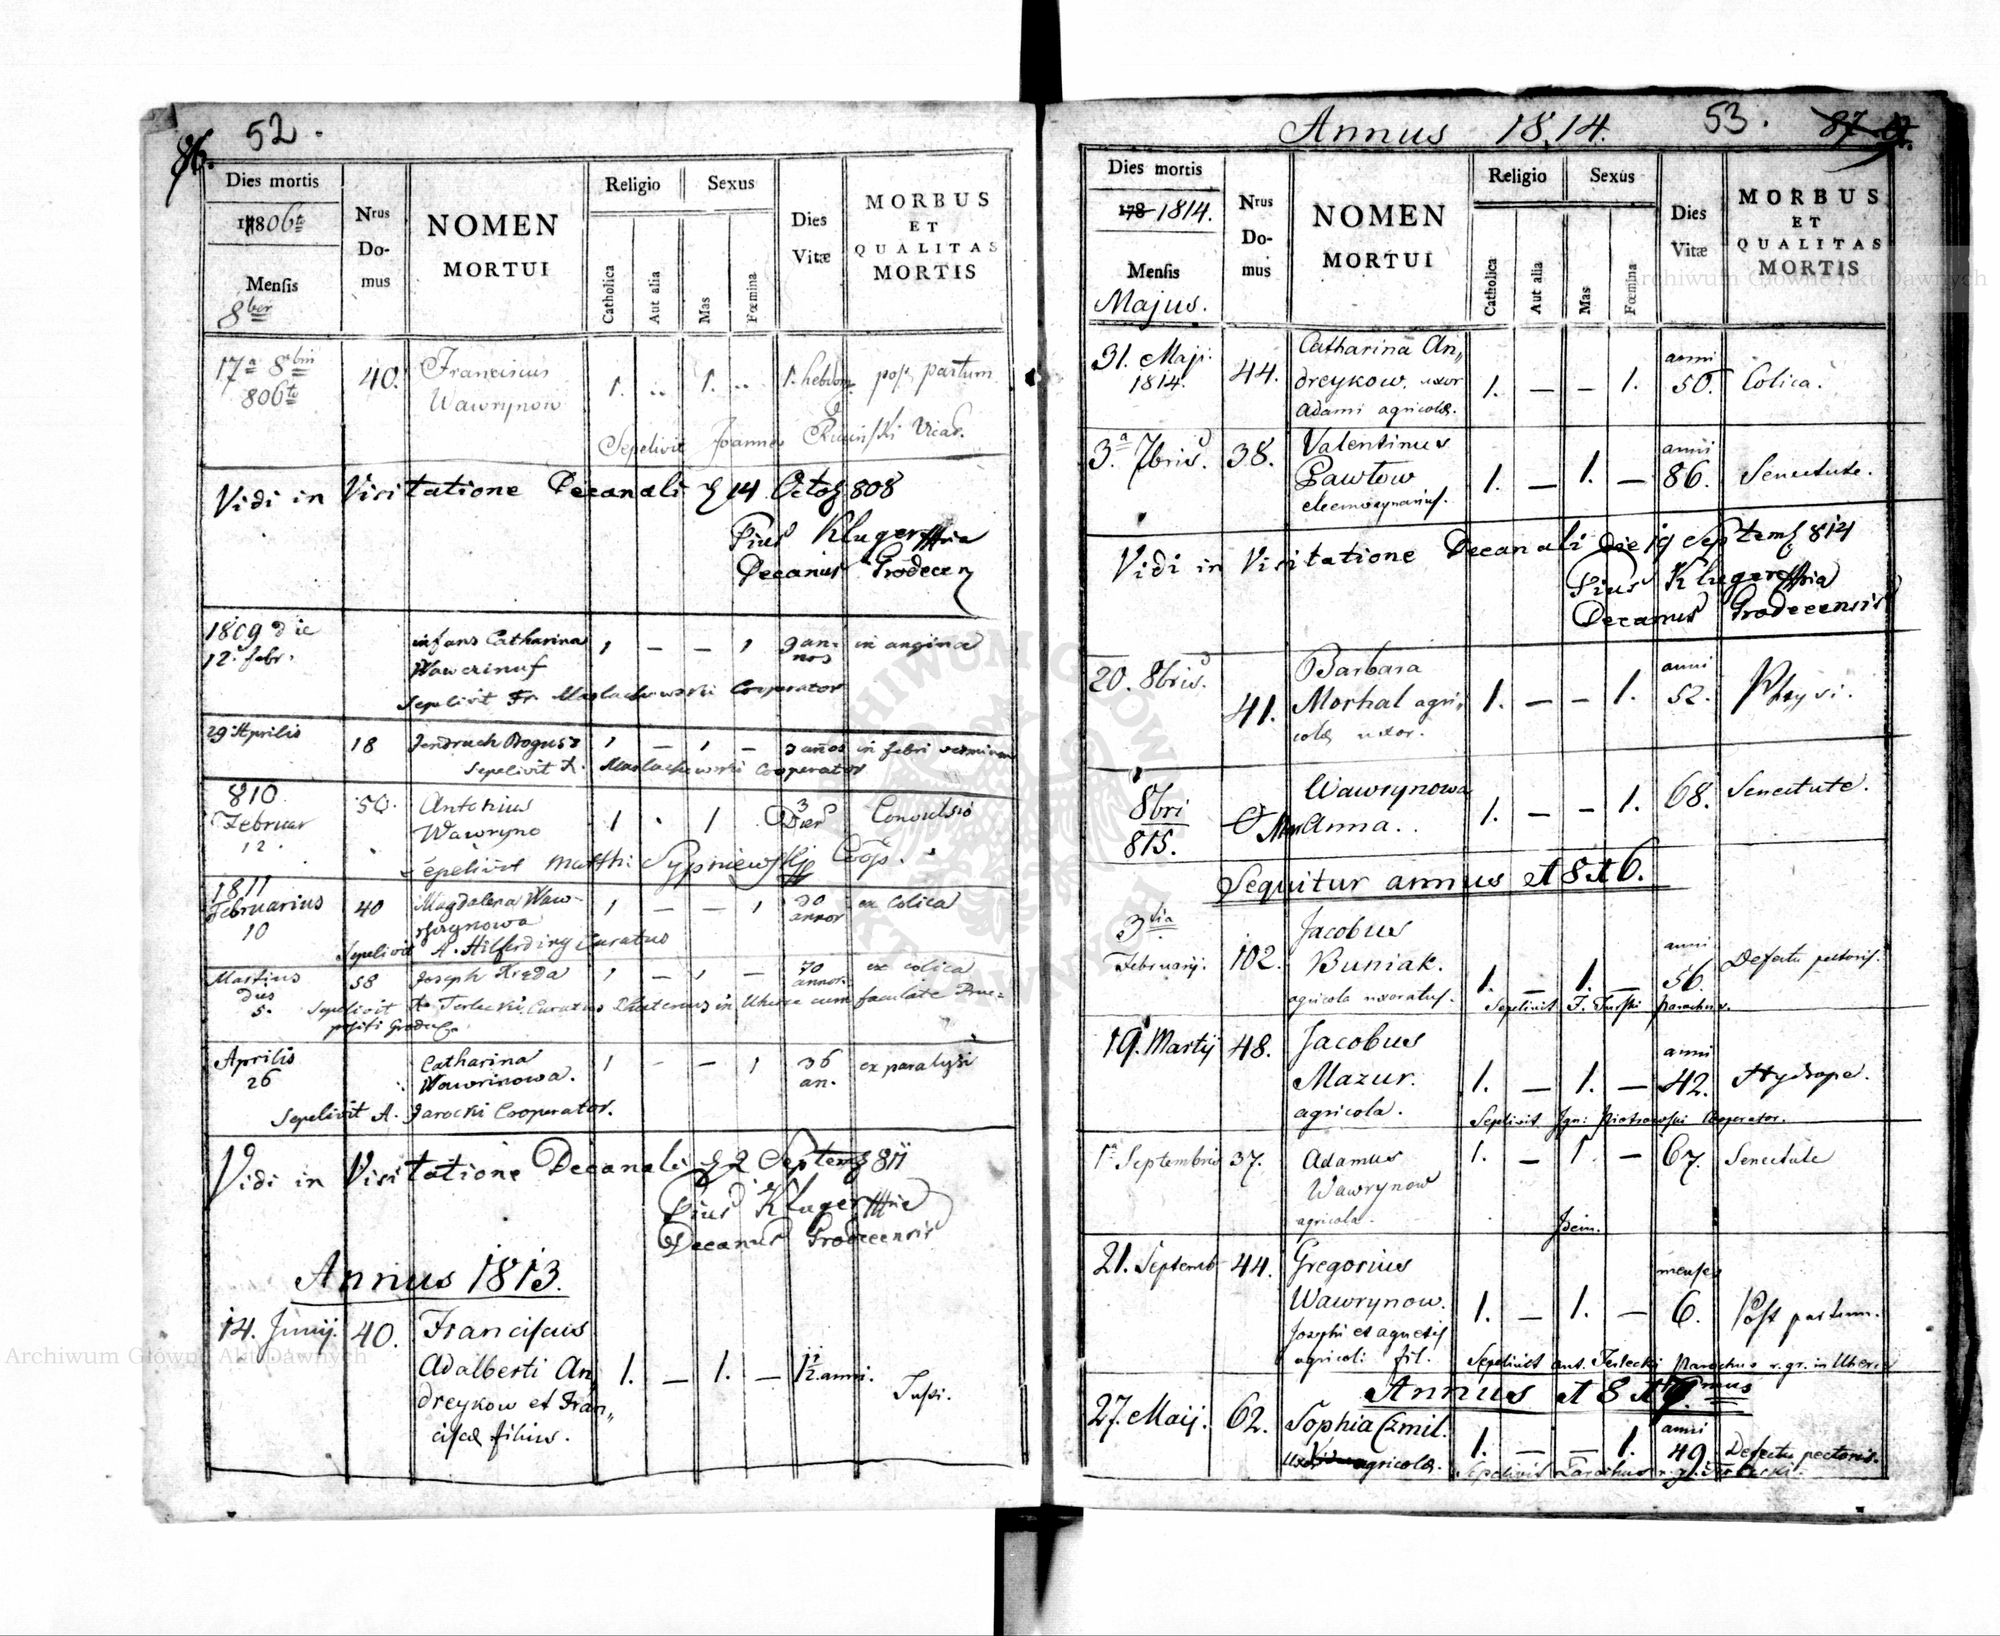 86.
52.
Dies mortis
Nrus Domus
NOMEN MORTUI
Religio
Sexus
Dies Vitæ
MORBUS ET QUALITAS MORTIS
1806to
Mensis
8ber
Catholica
Aut alia
Mas
Fœmina
17a 8bri 806to 40. Franciscus Wawrynow 1. .. 1. .. 1. hebdom. post partum
Sepelivit Joannes Vicar.
Vidi in Visitatione Decanali 14 Octob 808
Pius Kluger
Decanus Grodecen
1809 die 12. febr. infans Catharina Wawerinuf 1 — — 1 9 annos in angina
Sepelivit Fr. Maslachowski Cooperator
29 Aprilis 18 Jendruch Bogusz 1 — 1 — 3 años in febri
Sepelivit A. Maslachowski Cooperator
810 Februar 12. 50. Antonius Wawryno 1 . 1 . 3 Dies Convulsio
Sepelivit Matth: Sypniewski Coop.
1811 Februarius 10 40 Magdalena Wawrzynowa 1 — — 1 30 annor ex Colica
Sepelivit A. Hilferding Curatus
Martius dies 5. 58 Joseph Kręda 1 — 1 — 70 annor. ex colica
Sepelivit A. Terlecki Curatus in Uherce cum facultate
positi
Aprilis 26 Catharina Wawrinowa. 1 - — 1 36 an. ex paralysi
Sepelivit A. Jarocki Cooperator.
Vidi in Visitatione Decanali 2 Septemb 811
Pius Kluger
Decanus Grodecensis
Annus 1813.
14. Junij. 40. Franciscus Adalberti Andreykow et Franciscæ filius. 1. — 1. — 1½ anni. Tussi.
Annus 1814.
53.
87
Dies mortis
Nrus Domus
NOMEN MORTUI
Religio
Sexus
Dies Vitæ
MORBUS ET QUALITAS MORTIS
178 1814.
Mensis
Majus.
Catholica
Aut alia
Mas
Fœmina
31. Maji. 1814. 44. Catharina Andreykow. uxor Adami agricolæ. 1. — — 1. anni 50. Colica.
3a 7bris. 38. Valentinus Pawłow eleemosynarius. 1. — 1. — anni 86. Senectute.
Vidi in Visitatione Decanali Die 19 Septemb 814
Pius Kluger
Decanus Grodecensis
20. 8bris. 41. Barbara Morhal agricolæ uxor. 1. — — 1. anni 52. Phtysi.
8bri 815. Wawrynowa Anna.. 1. — — 1. 68. Senectute.
Sequitur annus 1816.
3tia Februarij. 102. Jacobus Buniak. agricola uxoratus. 1. — 1. — anni 56. Defectu pectoris.
Sepelivit F. Turski Parochus.
19. Martij 48. Jacobus Mazur. agricola. 1. — 1. — anni 42. Hydrope.
Sepelivit Ign: Piotrowski Cooperator.
1a Septembris 37. Adamus Wawrynow agricola. 1. — 1. — 67. Senectute
Idem.
21. Septemb 44. Gregorius Wawrynow. Josephi et agnetis agricoli fil. 1. — 1. — menses 6. Post partum.
Sepelivit ant. Terlecki Parochus r. gr. in Uherce
Annus 1819mus
27. Maij. 62. Sophia Czmil. uxor agricolæ. 1. — — 1. anni 49. Defectu pectoris.
Sepelivit Parochus r. g. Terlecki.
Archiwum Główne Akt Dawnych
Archiwum Główne Akt Dawnych
ARCHIWUM GŁÓWNE AKT DAWNYCH